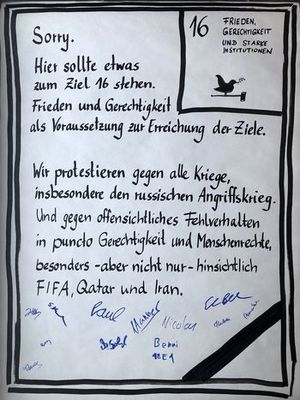 Sorry.
16 FRIEDEN,
GERECHTIGKEIT
UND STARKE
INSTITUTIONEN
Hier sollte etwas
zum Ziel 16 stehen.
Frieden und Gerechtigkeit
als Voraussetzung zur Erreichung der Ziele.
Wir protestieren gegen alle Kriege,
insbesondere den russischen Angriffskrieg.
Und gegen offensichtliches Fehlverhalten
in puncto Gerechtigkeit und Menschenrechte,
besonders -aber nicht nur- hinsichtlich
FIFA, Qatar und Iran.
Paul
Nicolas
Benni